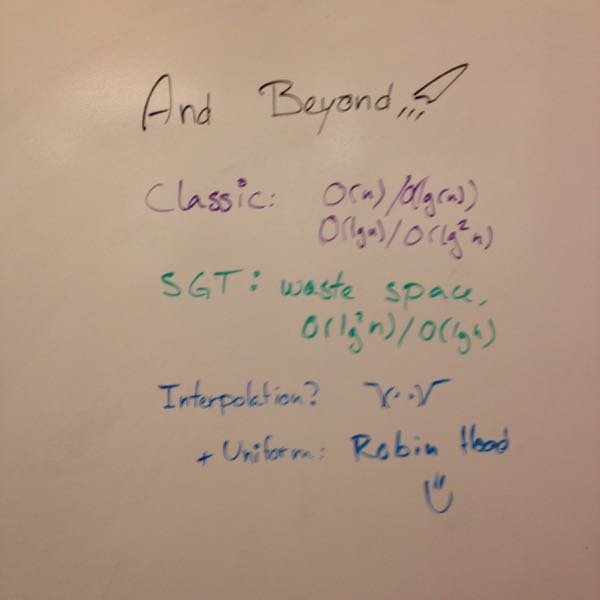 And Beyond,,,
Classic: O(n)/O(lg(n))
O(lgn)/O(lg²n)
SGT: waste space,
O(lg²n)/O(lgn)
Interpolation?
+ Uniform: Robin Hood